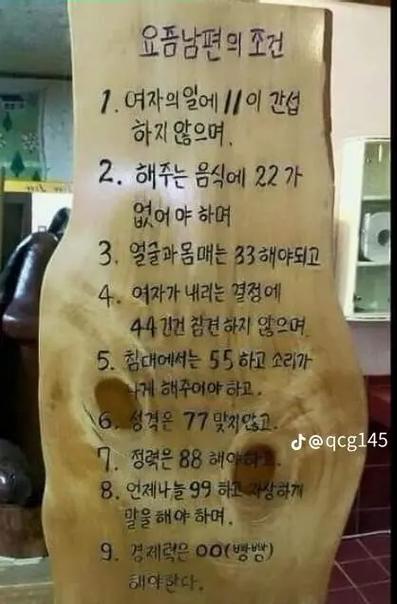 요즘남편의 조건
1. 여자의일에 11이 간섭
하지 않으며.
2. 해주는 음식에 22가
없어야 하며
3. 얼굴과몸매는 33해야되고
4. 여자가 내리는 결정에
44건건 참견하지 않으며.
5. 침대에서는 55하고 소리가
나게 해주어야하고.
6. 성격은 77맞지않고.
7. 정력은 88해야하고.
8. 언제나늘99하고 자상하게
말을해야 하며.
9. 경제력은 00(빵빵)
해야한다.
@qcg145